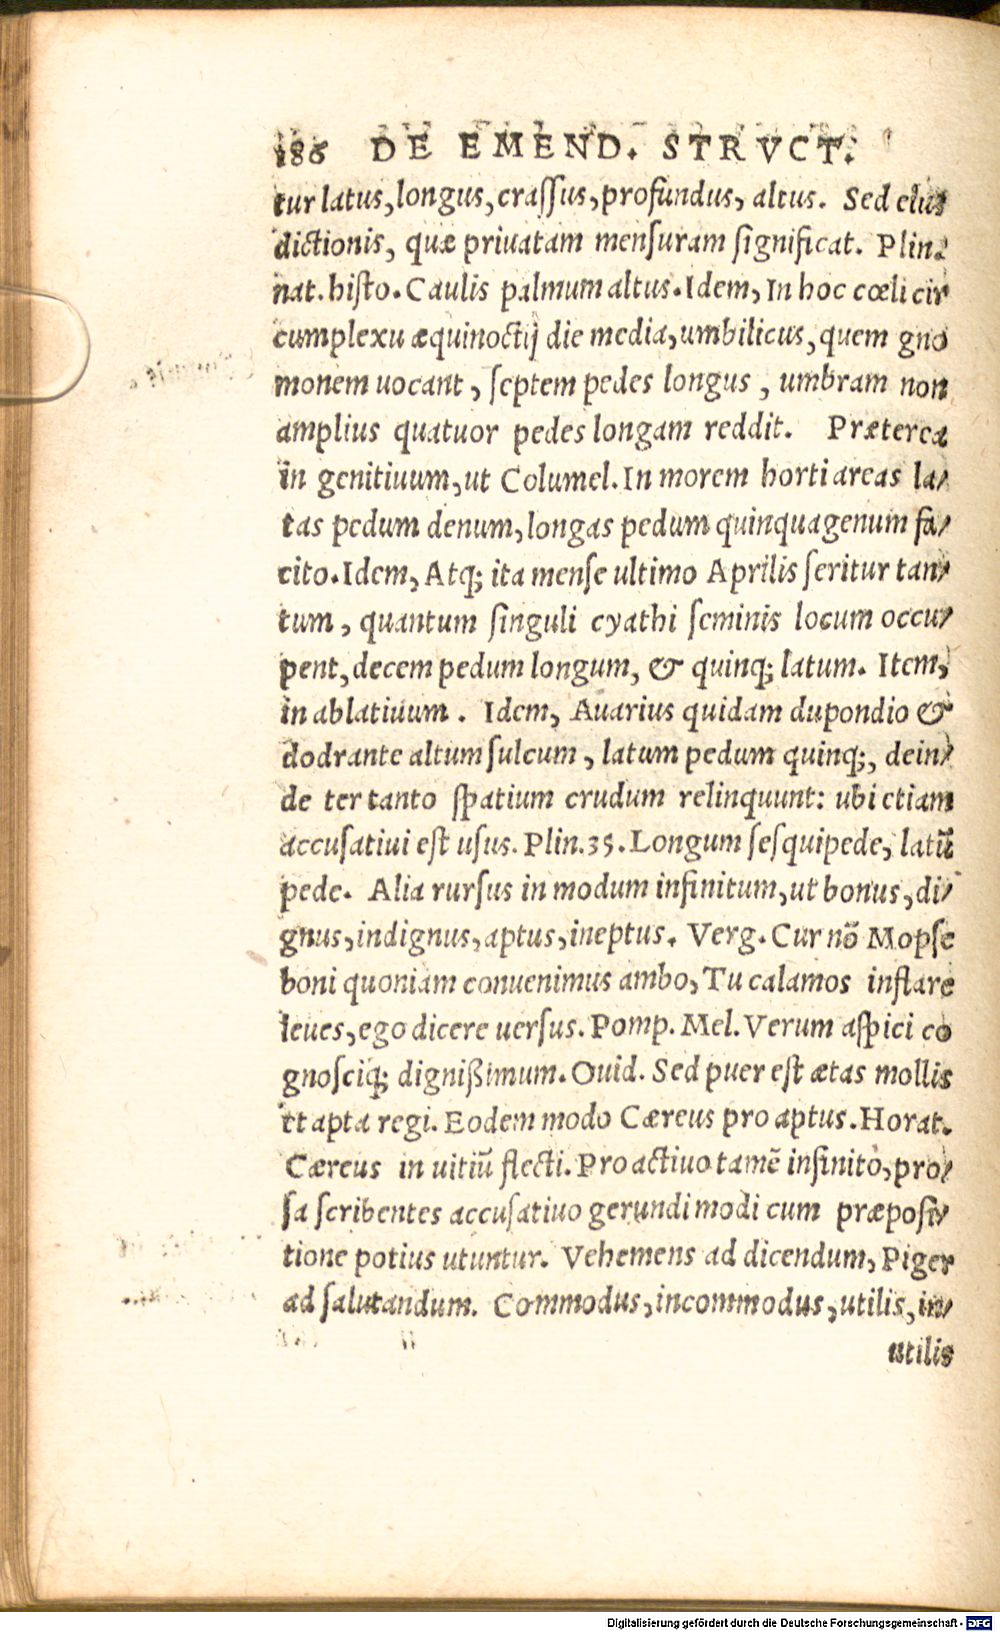 186 DE EMEND. STRVCT.
tur latus, longus, crassus, profundus, altus. Sed eius
dictionis, quæ priuatam mensuram significat. Plin.
nat. histo. Caulis palmum altus. Idem, In hoc cœli cir
cumplexu æquinoctij die media, umbilicus, quem gno
monem uocant, septem pedes longus, umbram non
amplius quatuor pedes longam reddit. Præterea
in genitiuum, ut Columel. In morem horti areas la-
tas pedum denum, longas pedum quinquagenum fa-
cito. Idem, Atq; ita mense ultimo Aprilis seritur tan-
tum, quantum singuli cyathi seminis locum occu-
pent, decem pedum longum, & quinq; latum. Item,
in ablatiuum. Idem, Auarius quidam dupondio &
dodrante altum sulcum, latum pedum quinq;, dein-
de ter tanto spatium crudum relinquunt: ubi etiam
accusatiui est usus. Plin. 35. Longum sesquipede, latũ
pede. Alia rursus in modum infinitum, ut bonus, di-
gnus, indignus, aptus, ineptus. Verg. Cur nõ Mopse
boni quoniam conuenimus ambo, Tu calamos inflare
leues, ego dicere uersus. Pomp. Mel. Verum aspici co
gnosciq; dignißimum. Ouid. Sed puer est ætas mollis
et apta regi. Eodem modo Cæreus pro aptus. Horat.
Cæreus in uitiũ flecti. Pro actiuo tamẽ infinito, pro-
sa scribentes accusatiuo gerundi modi cum præposi-
tione potius utuntur. Vehemens ad dicendum, Piger
ad salutandum. Commodus, incommodus, utilis, in-
utilis
Digitalisierung gefördert durch die Deutsche Forschungsgemeinschaft - DFG